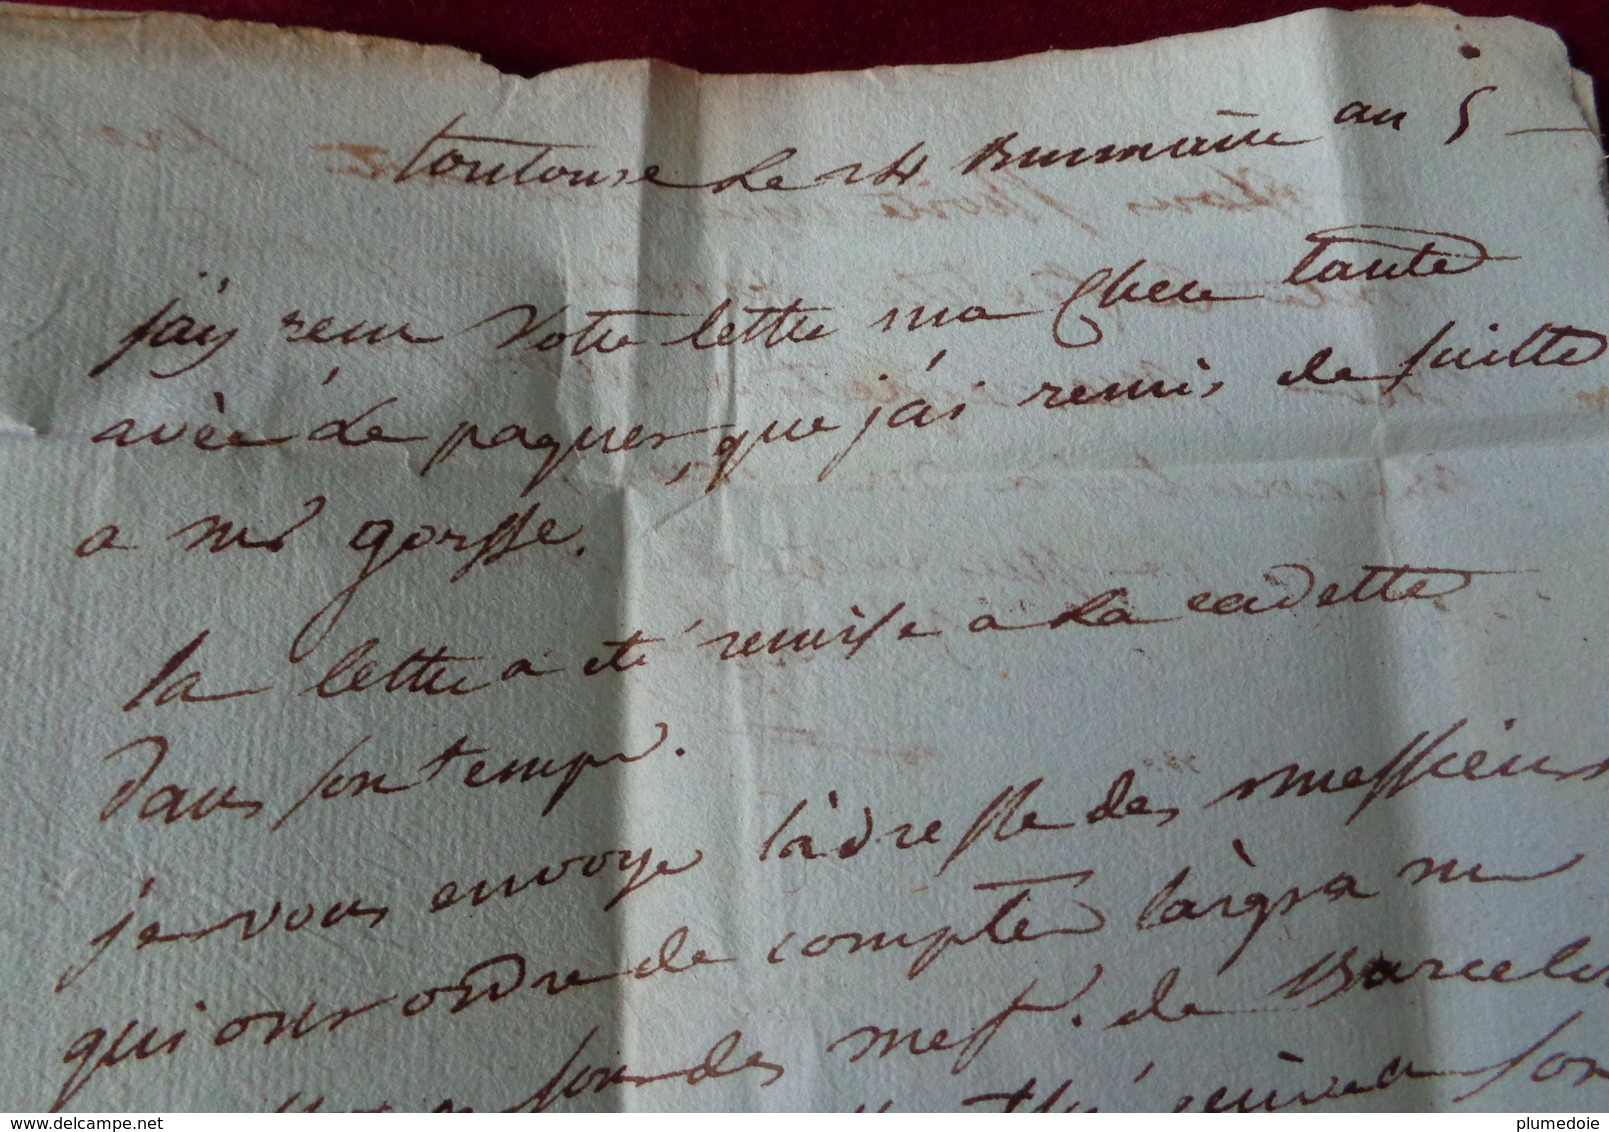 toulouse le 24 Brumaire an 5
j'ay reçu votre lettre ma chere tante
avèc lé paquet, que j'ái remis de suitte
a md gorsse.
la lettre a été remisse a la cadette
dans son temps.
je vous envoye l'àdresse des messieurs
qui ont ordre de compter l'àrgra m
sont des mess. de de Barcelo
son
plumedoie